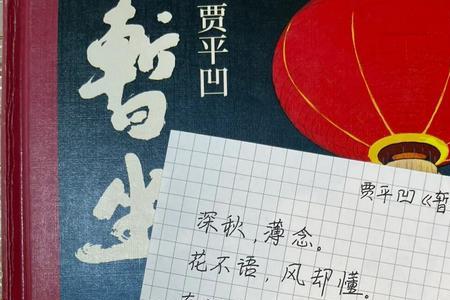 暫坐
贾平凹
贾平凹《暂
深秋,薄念。
花不语,风却懂。